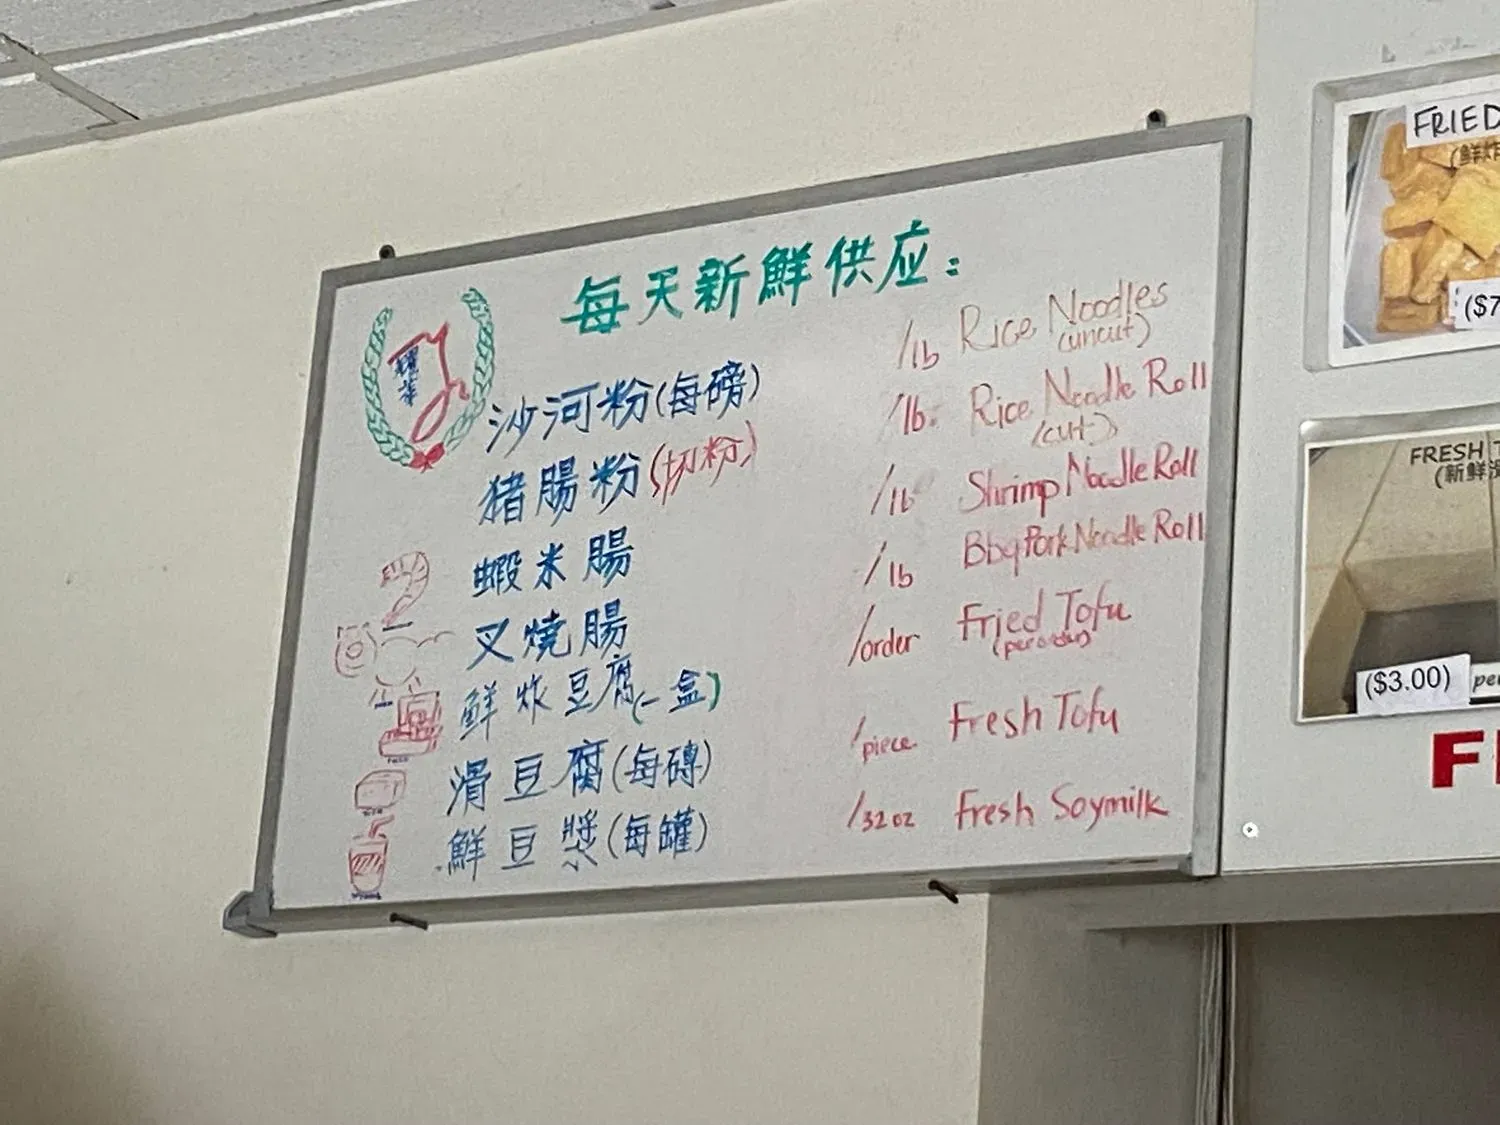 每天新鮮供应：
沙河粉(每磅) /lb Rice Noodles (uncut)
猪腸粉(切粉) /lb. Rice Noodle Roll (cut)
蝦米腸 /lb Shrimp Noodle Roll
叉燒腸 /lb Bbq Pork Noodle Roll
鮮炸豆腐(一盒) /order Fried Tofu (per order)
滑豆腐(每磚) /piece Fresh Tofu
鮮豆漿(每罐) /32oz Fresh Soymilk
FRIED
(鮮炸
($7
FRESH T
(新鮮滑
($3.00) per
F